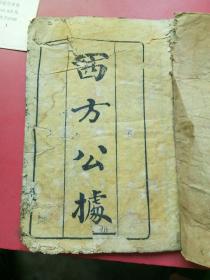 西方公據